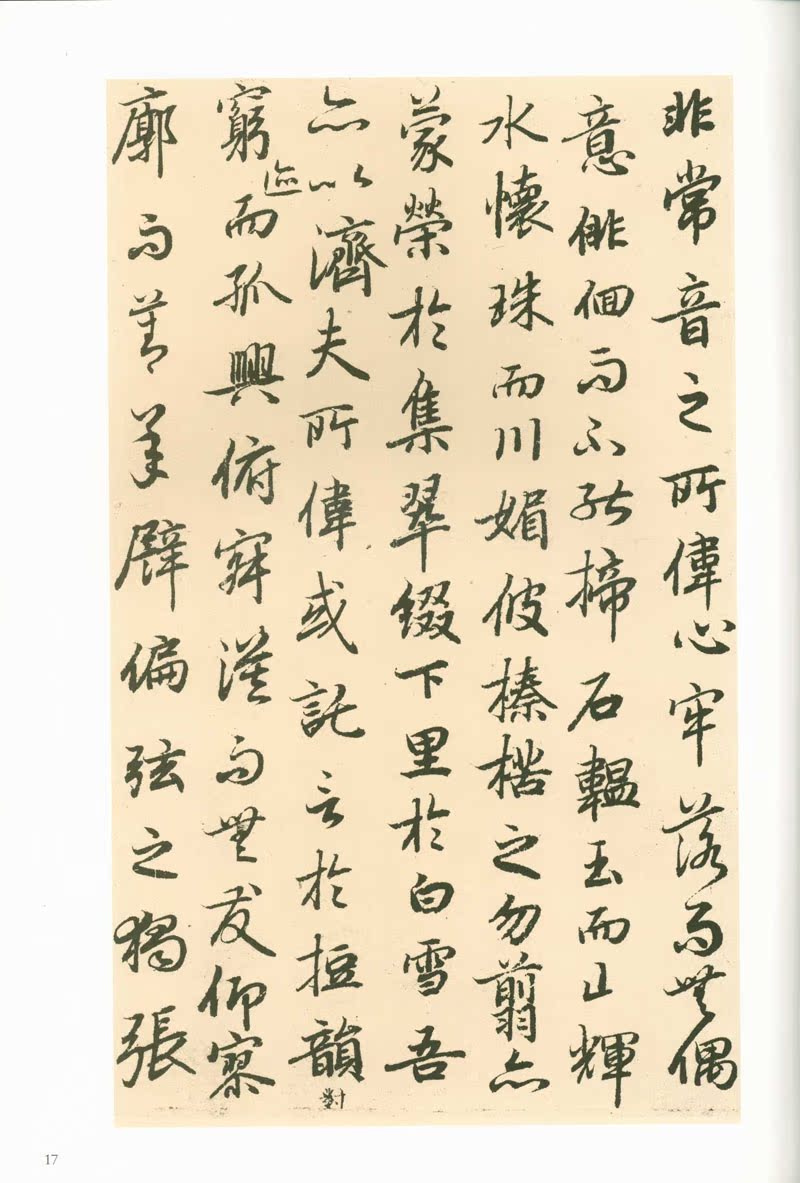 非常音之所偉心牢落而無偶
意俳佪而不能揥石韞玉而山輝
水懷珠而川媚彼榛楛之勿翦亦
蒙榮於集翠綴下里於白雪吾
亦以濟夫所偉或託言於短韻對
窮迹而孤興俯寂漠而無友仰寥
廓而莫承譬偏弦之獨張
17